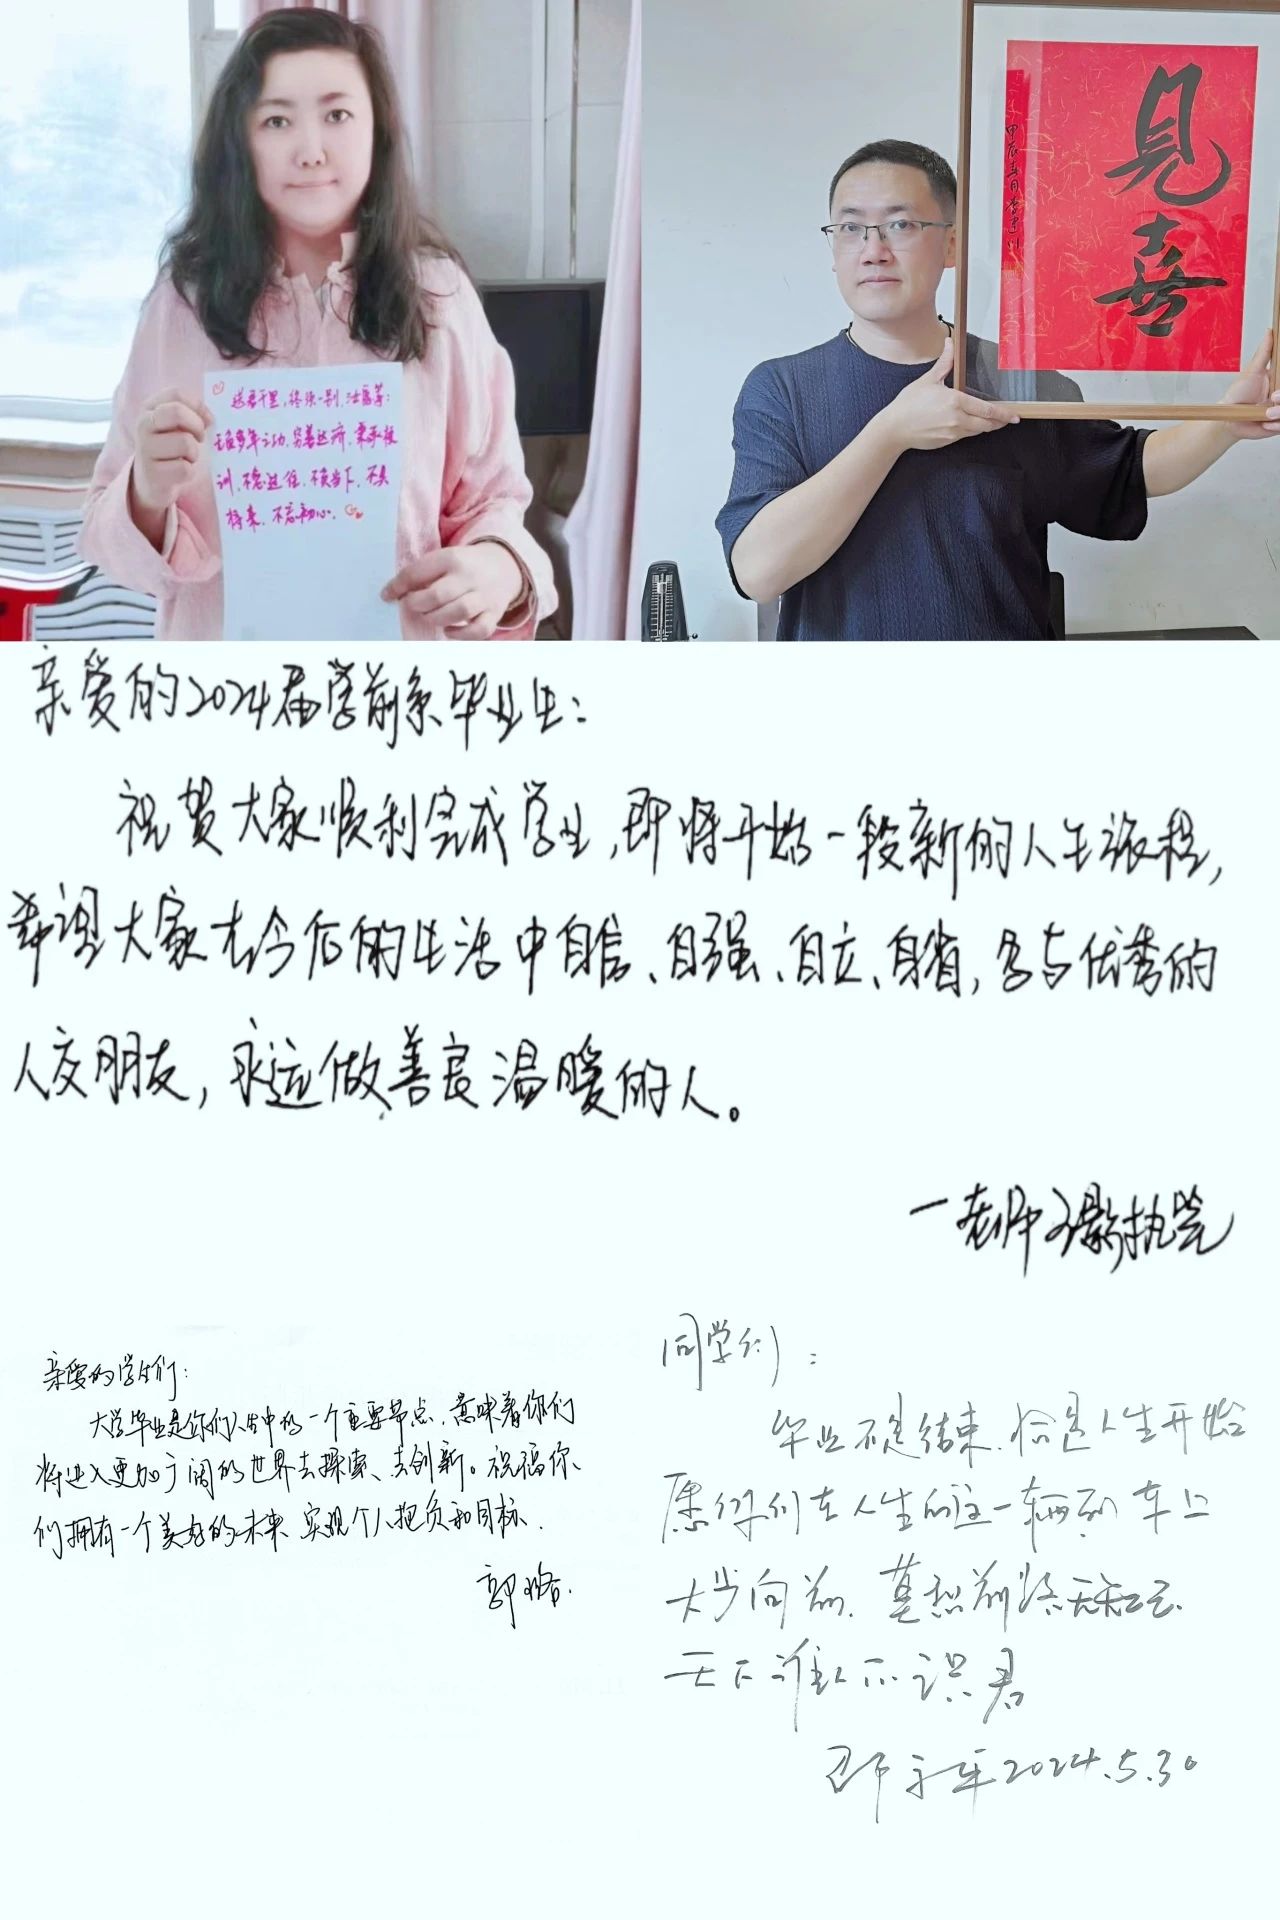 送君千里，终须一别，汝当等：
无负多年之功，穷善达济，秉承校
训，不念过往，不负当下，不惧
将来，不忘初心。
见喜
甲辰春月李建川
亲爱的2024届学前系毕业生：
祝贺大家顺利完成学业，即将开始一段新的人生旅程，
希望大家在今后的生活中自信、自强、自立、自省，多与优秀的
人交朋友，永远做善良温暖的人。
一老师 执笔
亲爱的学生们：
大学毕业是你们人生中的一个重要节点，意味着你们
将进入更加广阔的世界去探索、去创新。祝福你
们拥有一个美好的未来，实现个人抱负和目标。
郭
同学们：
毕业不是结束，恰是人生开始
愿你们在人生的这一辆列车上
大步向前，莫愁前路无知己
天下谁人不识君
邵永军2024.5.30